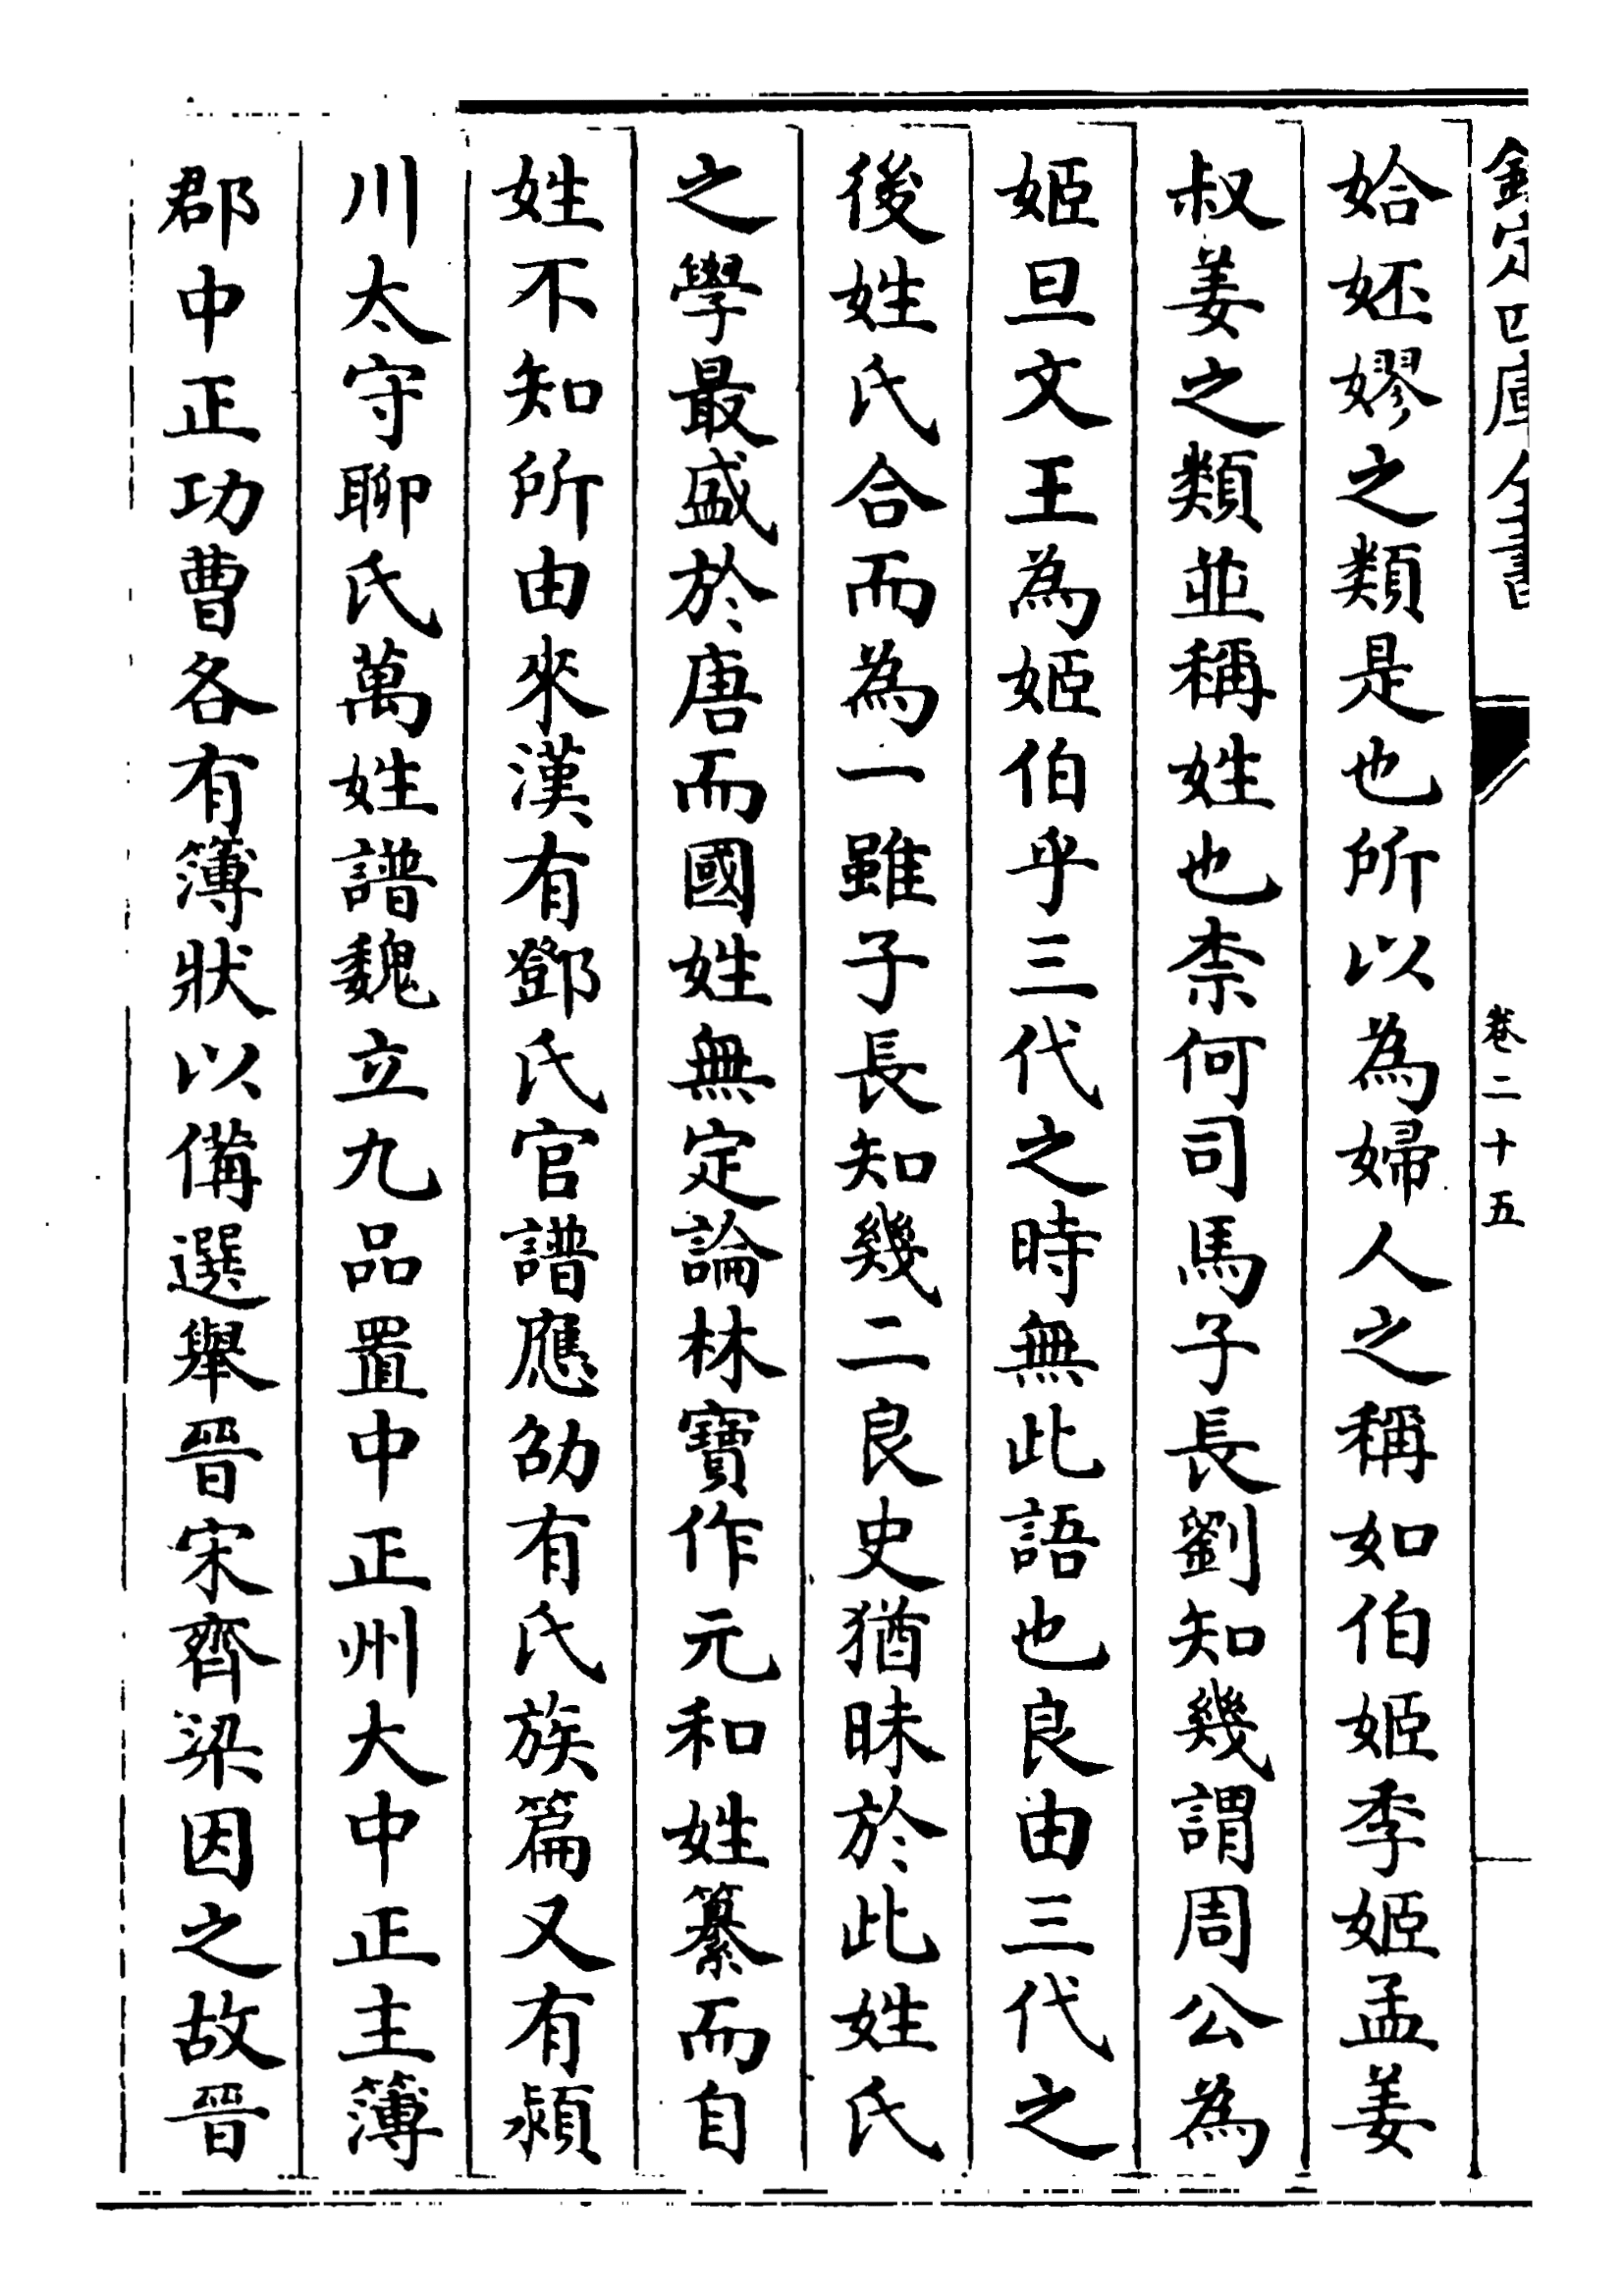 欽定四庫全書
卷二十五
姶妚嫪之類是也所以為婦人之稱如伯姬季姬孟姜
叔姜之類並稱姓也柰何司馬子長劉知幾謂周公為
姬旦文王為姬伯乎三代之時無此語也良由三代之
後姓氏合而為一雖子長知幾二良史猶昧於此姓氏
之學最盛於唐而國姓無定論林寶作元和姓纂而自
姓不知所由來漢有鄧氏官譜應劭有氏族篇又有潁
川太守聊氏萬姓譜魏立九品置中正州大中正主簿
郡中正功曹各有簿狀以備選舉晉宋齊梁因之故晉